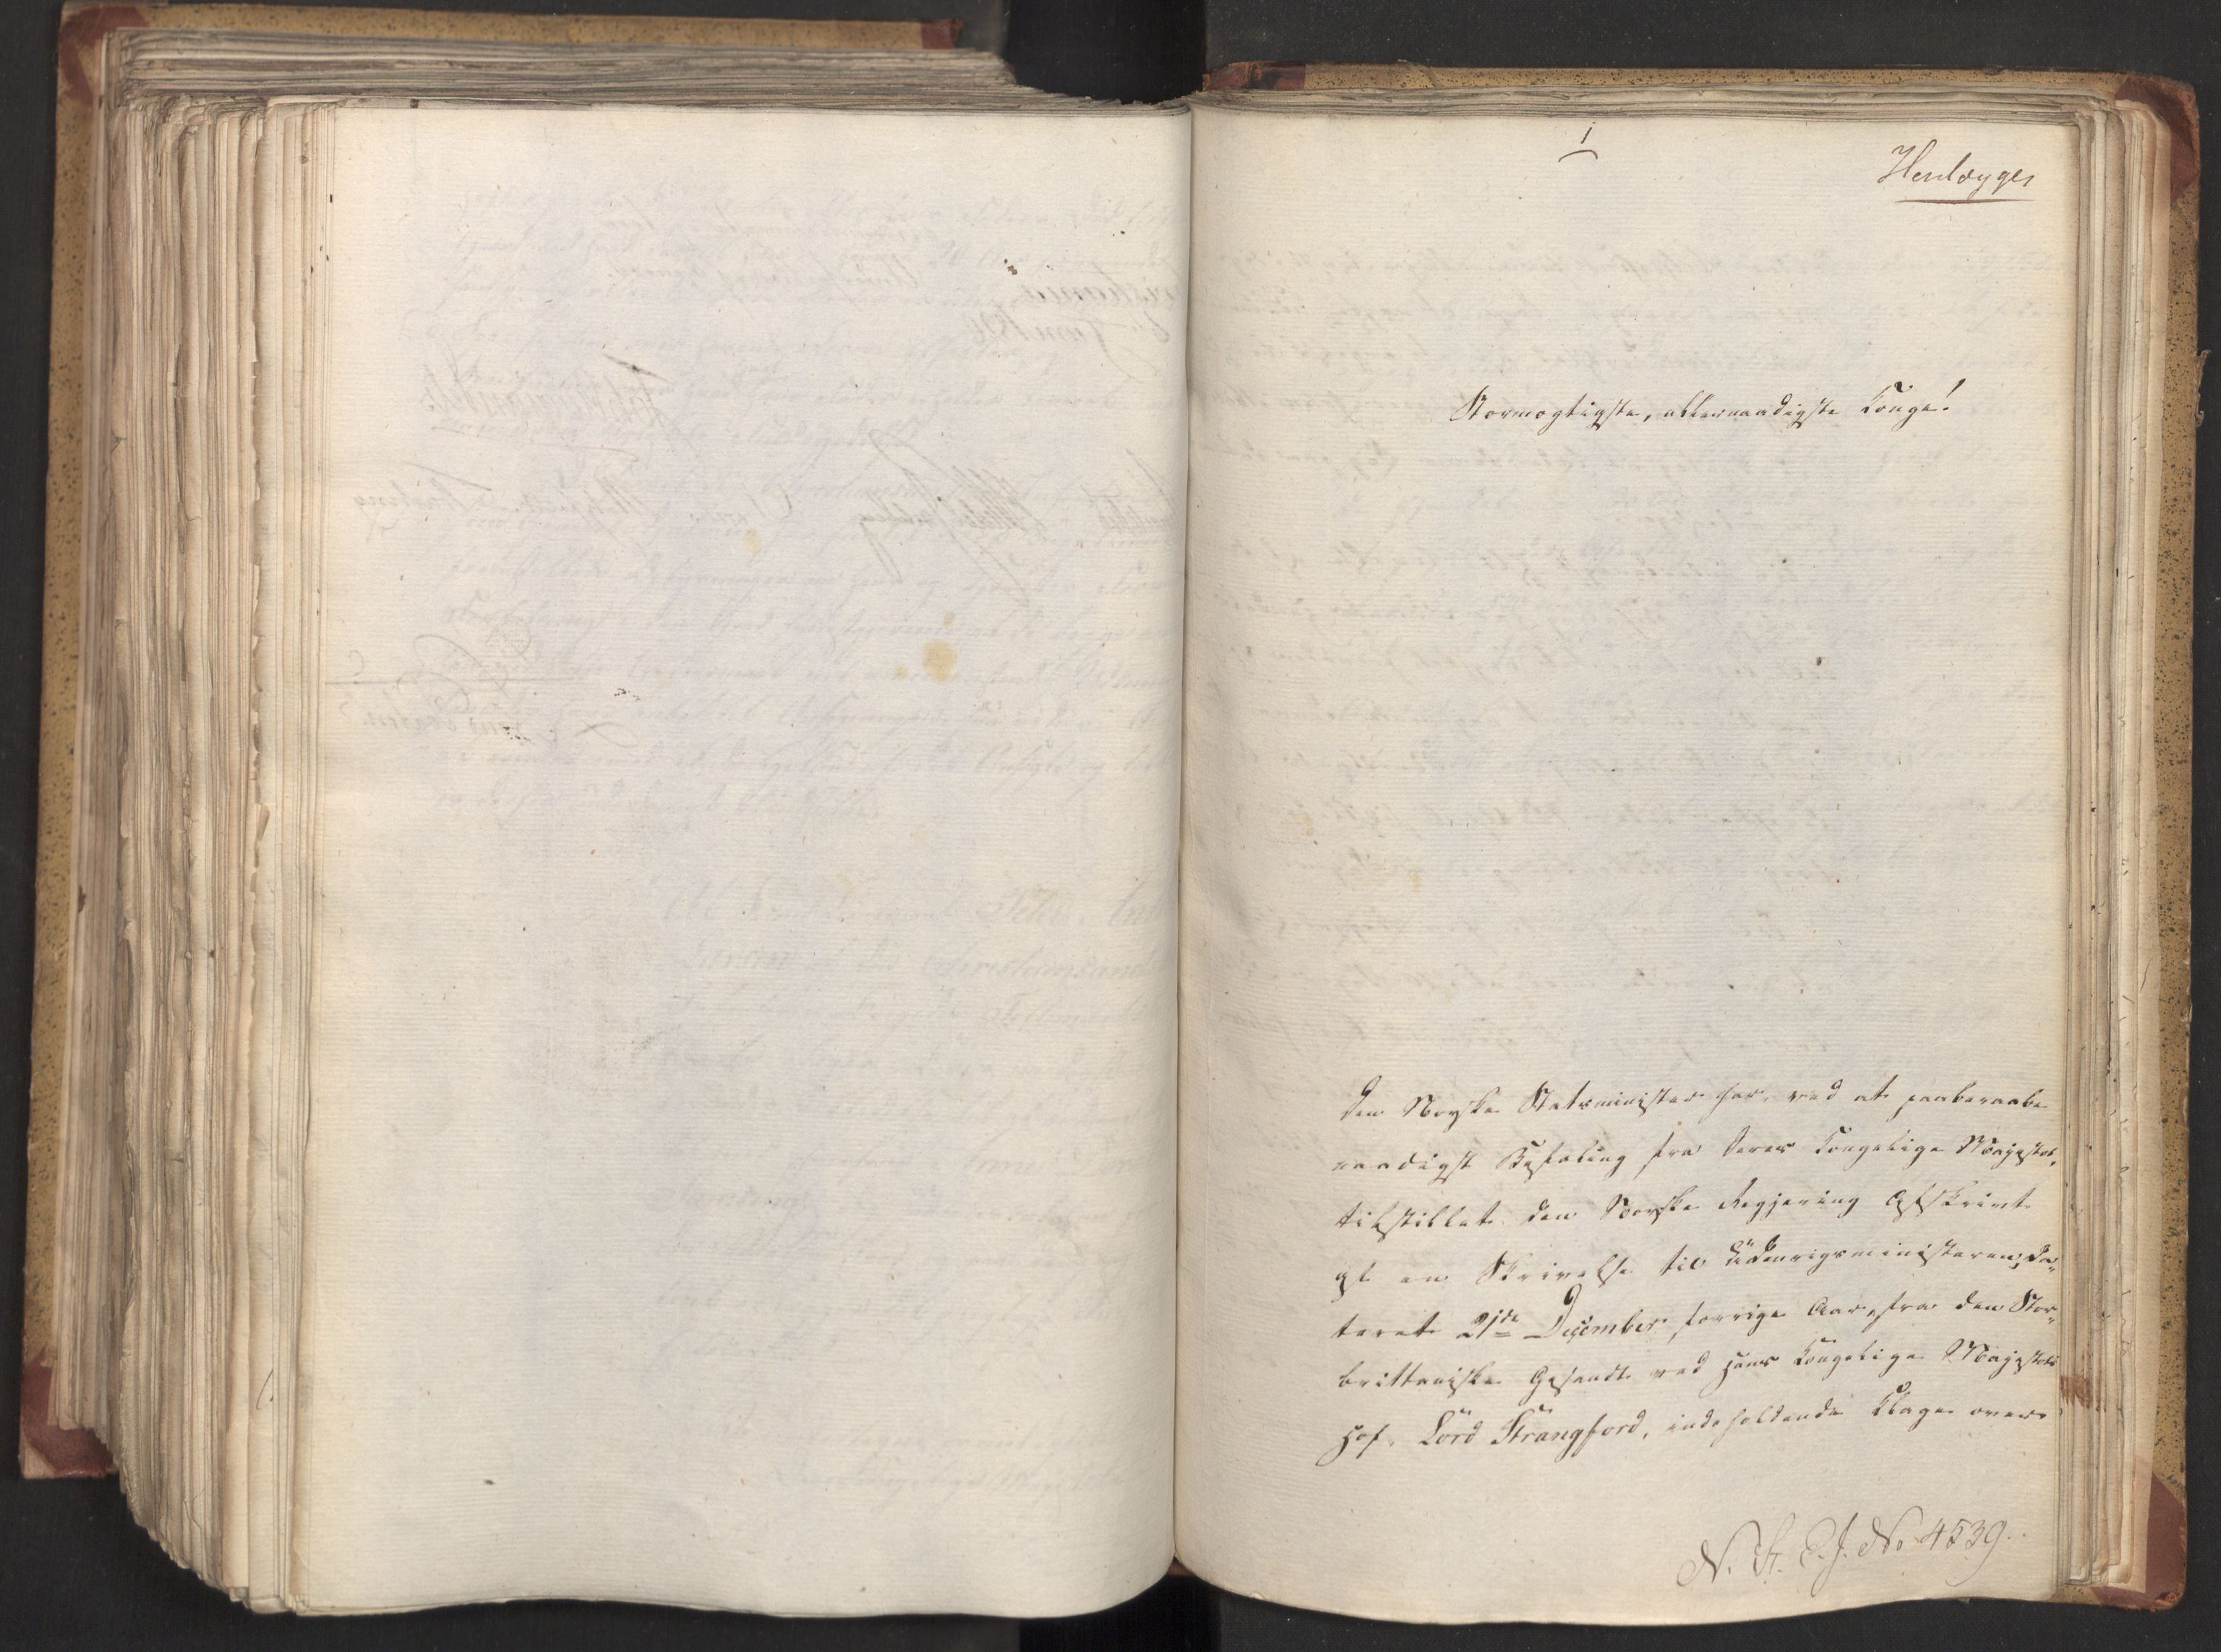 1
Henlægges
Stormægtigste, allernaadigste Konge!
Den Norske Statsminister har, ved at paaberaabe
naadigst Befaling fra Deres Kongelige Majestæt,
tilstillet den Norske Regjering Afskrivt
af en Skrivelse til Udenrigsministeren, da„
teret 21de December forrige Aar, fra den Stor„
brittaniske Gesandt ved Hans Kongelige Majestæts
Hof, Lord Strangford, indeholdende Klage over
N. St. E. J. No 4539.